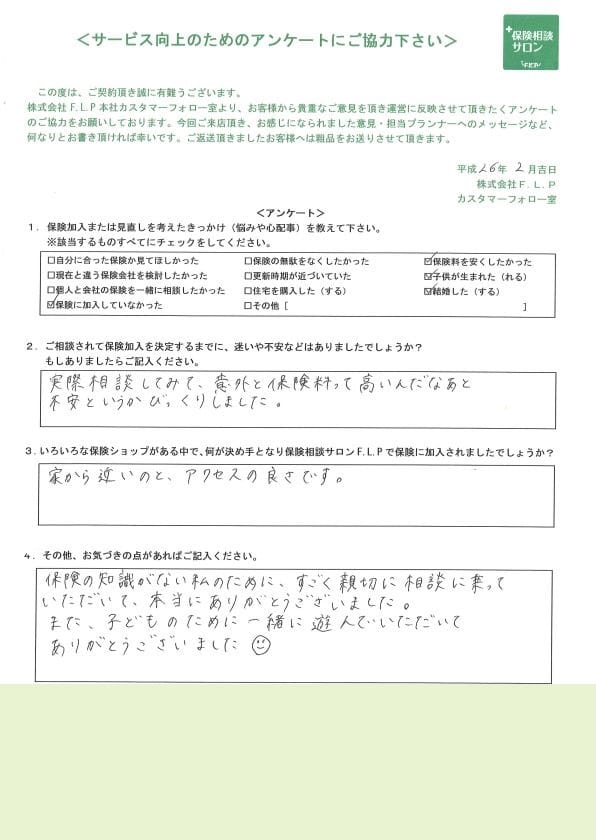 ＜サービス向上のためのアンケートにご協力下さい＞
+保険相談
サロン
F.L.P
この度は、ご契約頂き誠に有難うございます。
株式会社F.L.P本社カスタマーフォロー室より、お客様から貴重なご意見を頂き運営に反映させて頂きたくアンケート
のご協力をお願いしております。今回ご来店頂き、お感じになられました意見・担当プランナーへのメッセージなど、
何なりとお書き頂ければ幸いです。ご返送頂きましたお客様へは粗品をお送りさせて頂きます。
平成26年 2月吉日
株式会社F.L.P
カスタマーフォロー室
＜アンケート＞
1．保険加入または見直しを考えたきっかけ（悩みや心配事）を教えて下さい。
※該当するものすべてにチェックをしてください。
□自分に合った保険か見てほしかった □保険の無駄をなくしたかった ☑保険料を安くしたかった
□現在と違う保険会社を検討したかった □更新時期が近づいていた ☑子供が生まれた（れる）
□個人と会社の保険を一緒に相談したかった □住宅を購入した（する） ☑結婚した（する）
☑保険に加入していなかった □その他［ ］
2．ご相談されて保険加入を決定するまでに、迷いや不安などはありましたでしょうか？
もしありましたらご記入ください。
実際相談してみて、意外と保険料って高いんだなあと
不安というかびっくりしました。
3．いろいろな保険ショップがある中で、何が決め手となり保険相談サロンF.L.Pで保険に加入されましたでしょうか？
家から近いのと、アクセスの良さです。
4．その他、お気づきの点があればご記入ください。
保険の知識がない私のために、すごく親切に相談に乗って
いただいて、本当にありがとうございました。
また、子どものために一緒に遊んでいただいて
ありがとうございました☺